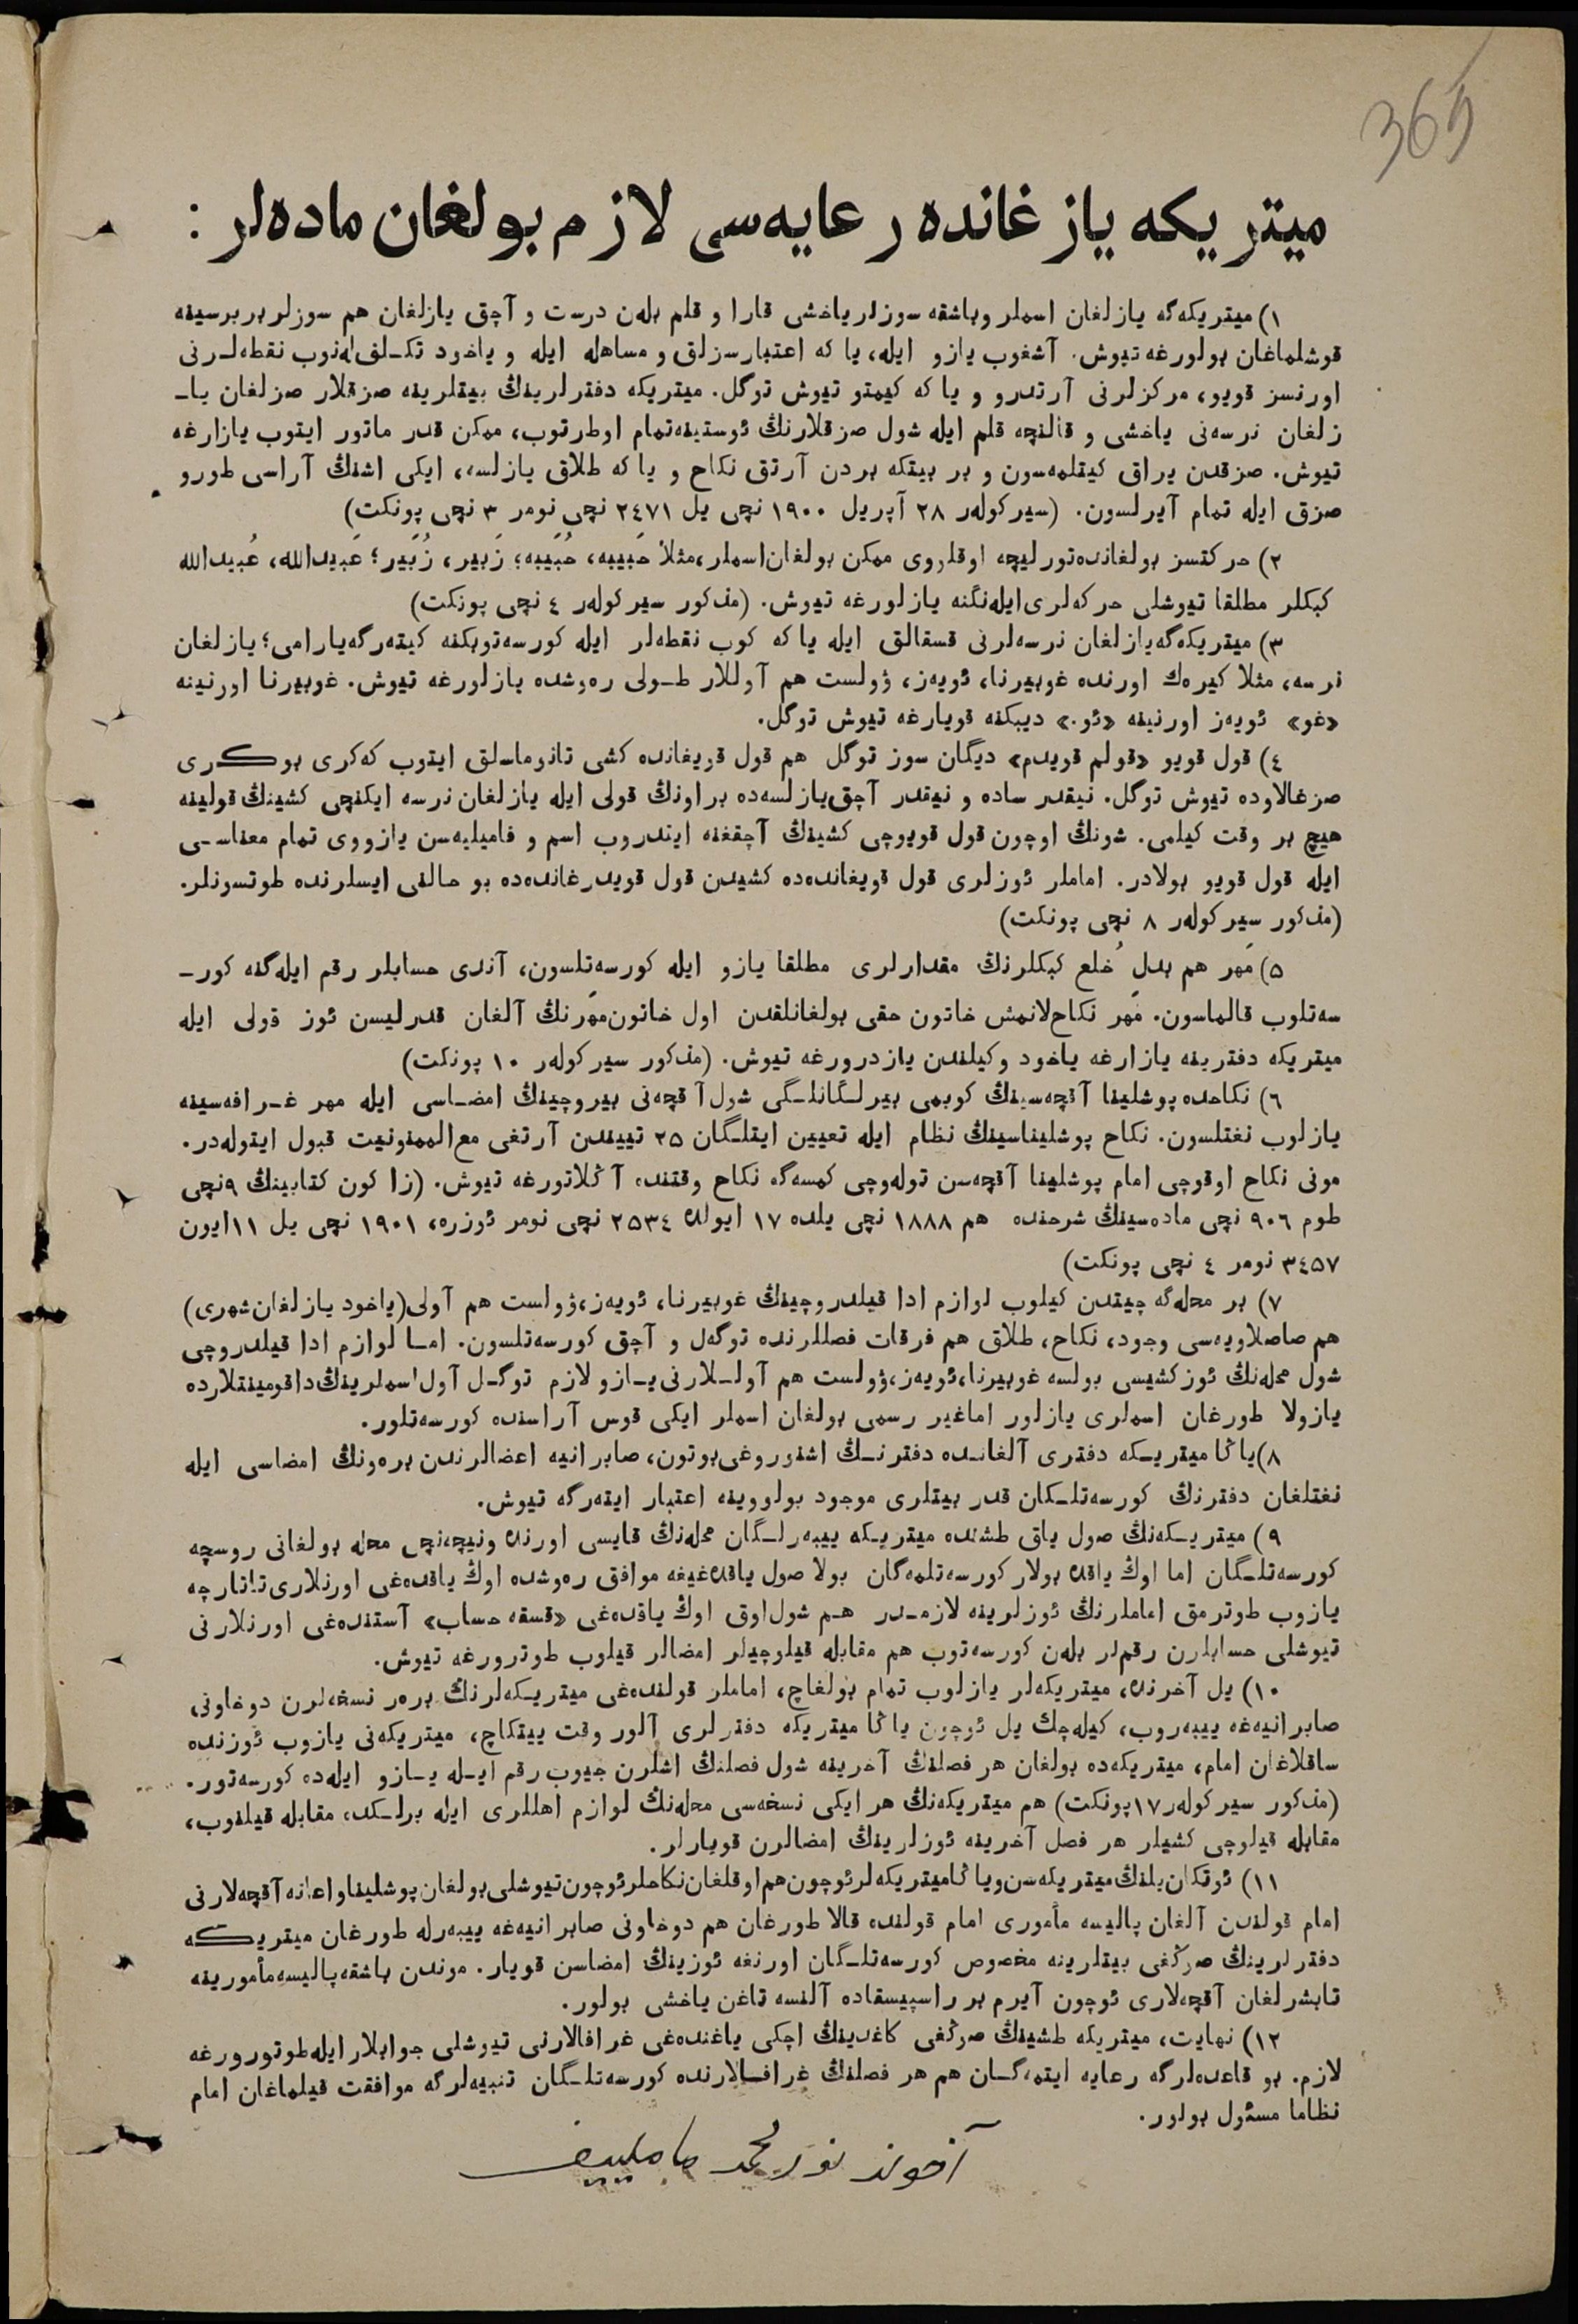 365
میتریكه یازغانده رعایه‌سی لازم بولغان ماده‌لر :
١) میتریكه‌گه یازلغان اسملر وباشقه سوزلر یاخشی قارا و قلم بله‌ن درست و آچق یازلغان هم سوزلر بر برسینه
قوشلماغان بولورغه تیوش. آشغوب یازو ایله، یا كه اعتبارسزلق و مساهله ایله و یاخود تكـلف له‌نوب نقطه‌لـرنی
اورنسز قویو، مركزلرنی آرتدرو و یا كه كیمتو تیوش توگل. میتریكه دفترلرینڭ بیتلرینه صزقلار صزلغان یاـ
زلغان نرسه‌نی یاخشی و قالنچه قلم ایله شول صزقلارنڭ ئوستینه‌تمام اوطرتوب، ممكن قدر ماتور ایتوب یازارغه
تیوش. صزقدن یراق كیتلمه‌سون و بر بیتكه بردن آرتق نكاح و یا كه طلاق یازلسه، ایكی اشنڭ آراسی طورو
صزق ایله تمام آیرلسون. (سیركوله‌ر ٢٨ آپریل ١٩٠٠ نچی یل ٢٤٧١ نچی نومر ٣ نچی پونكت)
٢) حركتسز بولغانده‌تورلیچه اوقلروی ممكن بولغان‌اسملر، مثلا حَبیبه، حُبَیبه؛ زَبیر، زُبَیر؛ عَبیدالله، عُبیدالله
كبكلر مطلقا تیوشلی حركه‌لری‌ایله‌نگنه یازلورغه تیوش. (مذكور سیركوله‌ر ٤ نچی پونكت)
٣) میتریكه‌گه‌یازلغان نرسه‌لرنی قسقالق ایله یا كه كوب نقطه‌لر ایله كورسه‌توبكنه كیته‌رگه‌یارامی؛ یازلغان
نرسه، مثلا كیره‌ك اورنده غوبیرنا، ئویه‌ز، ۋولست هم آوللار طـولی ره‌وشده یازلورغه تیوش. غوبیرنا اورنینه
«غو» ئویه‌ز اورنینه «ئو.» دیبكنه قویارغه تیوش توگل.
٤) قول قویو «قولم قویدم» دیگان سوز توگل هم قول قویغانده كشی تانوماسلق ایتوب كه‌كری بوكـری
صزغالاوده تیوش توگل. نیقدر ساده و نیقدر آچق‌یازلسه‌ده براونڭ قولی ایله یازلغان نرسه ایكنچی كشینڭ قولینه
هیچ بر وقت كیلمی. شونڭ اوچون قول قویوچی كشینڭ آچقغنه ایتدروب اسم و فامیلیه‌سن یازووی تمام معناسـی
ایله قول قویو بولادر. اماملر ئوزلری قول قویغانده‌ده كشیدن قول قویدرغانده‌ده بو حالنی ایسلرنده طوتسونلر.
(مذكور سیركوله‌ر ٨ نچی پونكت)
٥) مَهر هم بدلِ خُلع كبكلرنڭ مقدارلری مطلقا یازو ایله كورسه‌تلسون، آندی حسابلر رقم ایله‌گنه كورـ
سه‌تلوب قالماسون. مَهر نكاح‌لانمش خاتون حقی بولغانلقدن اول خاتون‌مَهرنڭ آلغان قدرلیسن ئوز قولی ایله
میتریكه دفترینه یازارغه یاخود وكیلندن یازدرورغه تیوش. (مذكور سیركوله‌ر ١٠ پونكت)
٦) نكاحده پوشلینا آقچه‌سینڭ كوبمی بیرلـگانلـگی شول آقچه‌نی بیروچینڭ امضـاسی ایله مهر غـرافه‌سینه
یازلوب نغتلسون. نكاح پوشلیناسینڭ نظام ایله تعیین ایتلـگان ٢٥ تییندن آرتغی مع‌الممنونیت قبول ایتوله‌در.
مونی نكاح اوقوچی امام پوشلینا آقچه‌سن توله‌وچی كمسه‌گه نكاح وقتنده آڭلاتورغه تیوش. (زاكون كتابینڭ ٩نچی
طوم ٩٠٦ نچی ماده‌سینڭ شرحنده هم ١٨٨٨ نچی یلده ١٧ ایولده ٢٥٣٤ نچی نومر ئوزره، ١٩٠١ نچی یل ١١ایون
٣٤٥٧ نومر ٤ نچی پونكت)
٧) بر محله‌گه چیتدن كیلوب لوازم ادا قیلدروچینڭ غوبیرنا، ئویه‌ز، ۋولست هم آولی(یاخود یازلغان‌شهری)
هم صاصلاویه‌سی وجود، نكاح، طلاق هم فرقات فصللرنده توگه‌ل و آچق كورسه‌تلسون. امـا لوازم ادا قیلدروچی
شول محله‌نڭ ئوز كشیسی بولسه غوبیرنا، ئویه‌ز، ۋولست هم آولـلارنی یـازو لازم توگـل آول اسملرینڭ‌داقومینتلارده
یازولا طورغان اسملری یازلور اماغیر رسمی بولغان اسملر ایكی قوس آراسنده كورسه‌تلور.
٨)یاڭا میتریـكه دفتری آلغانـده دفترنـڭ اشنوروغی‌بوتون، صابرانیه اعضالرندن بره‌ونڭ امضاسی ایله
نغتلغان دفترنڭ كورسه‌تلـكان قدر بیتلری موجود بولووینه اعتبار ایته‌رگه تیوش.
٩) میتریـكه‌نڭ صول یاق طشنده میتریـكه یبیه‌رلـگان محله‌نڭ قایسی اورنده ونیچه‌نچی محله بولغانی روسچه
كورسه‌تلـگان اما اوڭ یاقده بولار كورسه‌تلمه‌گان بولا صول یاقده‌غیغه موافق ره‌وشده اوڭ یاقده‌غی اورنلاری‌تاتارچه
یازوب طوترمق اماملرنڭ ئوزلرینه لازمـدر هـم شول‌اوق اوڭ یاقده‌غی «قسقه حساب» آستنده‌غی اورنلارنی
تیوشلی حسابلرن رقم‌لر بله‌ن كورسه‌توب هم مقابله قیلوچیلر امضالر قیلوب طوترورغه تیوش.
١٠) یل آخرنده، میتریكه‌لر یازلوب تمام بولغاچ، اماملر قولنده‌غی میتریـكه‌لرنڭ بره‌ر نسخه‌لرن دوخاونی
صابرانیه‌غه یبیه‌روب، كیله‌چك یل ئوچون یاڭا میتریكه دفترلری آلور وقت ییتكاچ، میتریكه‌نی یازوب ئوزنده
ساقلاغان امام، میتریكه‌ده بولغان هر فصلنڭ آخرینه شول فصلنڭ اشلرن جیوب رقم ایـله یـازو ایله‌ده كورسه‌تور.
(مذكور سیركوله‌ر١٧پونكت) هم میتریكه‌نڭ هر ایكی نسخه‌سی محله‌نڭ لوازم اهللری ایله برلـكده مقابله قیلنوب،
مقابله قیلوچی كشیلر هر فصل آخرینه ئوزلرینڭ امضالرن قویارلر.
١١) ئوتكان‌یلنڭ میتریكه‌سن ویاڭامیتریكه‌لرئوچون‌هم‌اوقلغان‌نكاحلرئوچون‌تیوشلی‌بولغان‌پوشلیناواعانه آقچه‌لارنی
امام قولندن آلغان پالیسه مأموری امام قولنده قالا طورغان هم دوخاونی صابرانیه‌غه یبیه‌رله طورغان میتریـكه
دفترلرینڭ صوڭغی بیتلرینه مخصوص كورسه‌تلـگان اورنغه ئوزینڭ امضاسن قویار. موندن باشقه‌پالیسه‌مأمورینه
تابشرلغان آقچه‌لاری ئوچون آیرم بر راسپیسقاده آلنسه تاغن یاخشی بولور.
١٢) نهایت، میتریكه طشینڭ صوڭغی كاغدینڭ اچكی یاغنده‌غی غرافالارنی تیوشلی جوابلار ایله‌طوتورورغه
لازم. بو قاعده‌لرگه رعایه ایتمه‌گـان هم هر فصلنڭ غرافـالارنده كورسه‌تلـگان تنبیه‌لرگه موافقت قیلماغان امام
نظاما مسئول بولور.
آخوند نورمحمد ماملییف